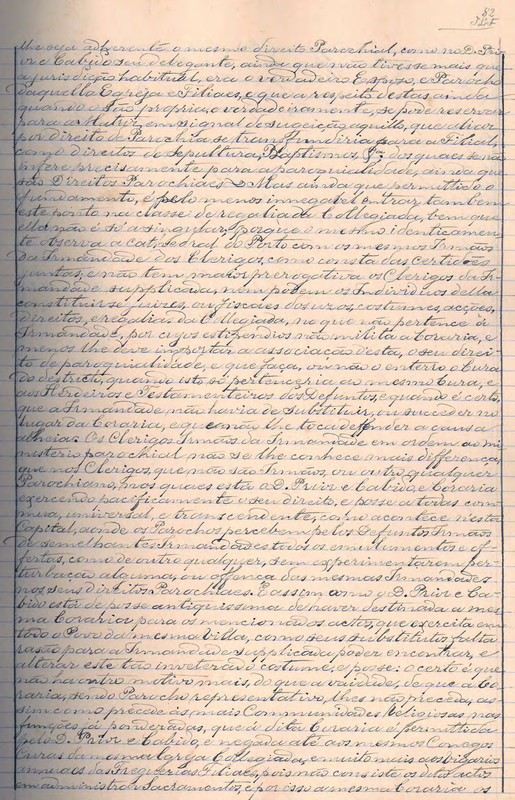 82
lhe seja adherente o mesmo direito Parochial, como no D. Pri-
or e Cabido seu delegante, ainda que não tivesse mais que
a jurisdicção habitual, era o verdadeiro Esposo, e Parocho
daquella Egreja e Filiaes, e que a respeito destas, ainda
quando o são propria e verdadeiramente, se póde reservar
para a Matriz, em signal de sugeição aquillo, que aliàs
por direito de Parochia se transfundiria para a Filial,
como direitos de sepultura, Baptismos, &ª dos quaes se não
infere precisamente para a paroquialidade, ainda que
são Direitos Parochiaes. Mas ainda que permittido o
fundamento, é pelo menos innegavel entrar tambem
este ponto na classe de regalia de Collegiada, bem que
ella não é só a singular, porque o mesmo identicamen-
te observa a cathedral do Porto com os mesmos Irmãos
da Irmandade dos Clerigos, como consta das certidões
juntas, e não tem maior prerogativa os Clerigos da Ir-
mandade supplicada, nem podem os Individuos della
constituir-se juizes, ou fiscaes dos uzos, costumes, acções,
direitos, e regalias da Collegiada, no que não pertence á
Irmandade, por cujos estipendios não milita a Coraria, e
menos lhe deve importar a associação desta, o seu direi-
to de paroquialidade, e que faça, ou não o enterro o Cura
do destricto, quando isto só pertenceria ao mesmo Cura, e
aos Herdeiros e Testamenteiros dos Defuntos, e quando é certo,
que a Irmandade não havia de substituir, ou succeder no
lugar da Coraria, e que não lhe toca deffender a causa
alheia. Os Clerigos Irmãos da Irmandade em ordem ao mi-
nisterio parochial não se lhe conhece mais differença,
que nos Clerigos, que não são Irmãos, ou outro qualquer
Parochiano, nos quaes está o D. Prior e Cabido, e Coraria
exercendo pacificamente o seu direito, e posse a todas com-
mua, universal, e transcendente, como acontece nesta
Capital, aonde os Parochos percebem pelos Defuntos Irmãos
de semelhantes Irmandades todos os emolumentos e of-
fertas, como de outro qualquer, sem experimentarem per-
turbação alguma, ou offença das mesmas Irmandades
nos seus direitos Parochiaes. E assim como o D. Prior e Ca-
bido está de posse antiquissima de haver destinada a mes-
ma Coraria para os mencionados actos, que exercita em
todo o Povo da mesma Villa, como seus substitutos, falta
rasão para a Irmandade supplicada poder encontrar, e
alterar este tão inveterado costume, e posse: o certo é que
não ha outro motivo mais, do que a vaidade, de que a Co-
raria, sendo Parocho representativo, lhes não preceda, as-
sim como precede ás mais Communidades Religiosas, nas
funções já ponderadas, que á dita Coraria é permittida
pelo D. Prior e Cabido, e negada até aos mesmos Conegos
Curas da mesma Egreja Collegiada, e muito mais aos Vigarios
annuaes das Freguezias Filiaes, pois não consiste os ditos actos
em administrar Sacramentos, e por isso a mesma Coraria os